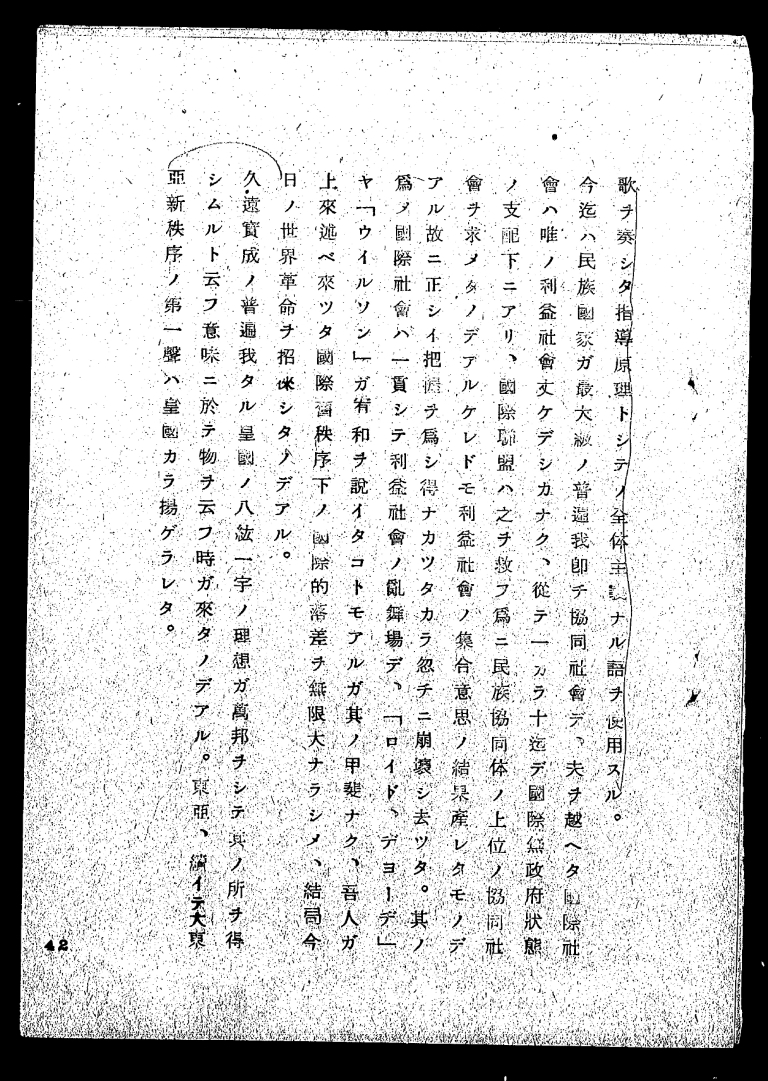 歌ヲ奏シタ指導原理トシテノ全体主義ナル語ヲ使用スル。
今迄ハ民族國家ガ最大級ノ普遍我卽チ協同社會デ、夫ヲ越ヘタ國際社
會ハ唯ノ利益社會丈ケデシカナク、從テ一カラ十迄デ國際無政府狀態
ノ支配下ニアリ、國際聯盟ハ之ヲ救フ爲ニ民族協同体ノ上位ノ協同社
會ヲ求メタノデアルケレドモ利益社會ノ集合意思ノ結果產レタモノデ
アル故ニ正シイ把握ヲ爲シ得ナカツタカラ忽チニ崩壞シ去ツタ。其ノ
爲メ國際社會ハ一貫シテ利益社會ノ亂舞場デ、「ロイド、デヨーデ」
ヤ「ウイルソン」ガ宥和ヲ說イタコトモアルガ其ノ甲斐ナク、吾人ガ
上來述ベ來ツタ國際舊秩序下ノ國際的落差ヲ無限大ナラシメ、結局今
日ノ世界革命ヲ招來シタノデアル。
久遠實成ノ普遍我タル皇國ノ八紘一宇ノ理想ガ萬邦ヲシテ其ノ所ヲ得
シムルト云フ意味ニ於テ物ヲ云フ時ガ來タノデアル。東亞、續イテ大東
亞新秩序ノ第一聲ハ皇國カラ揚ゲラレタ。
42